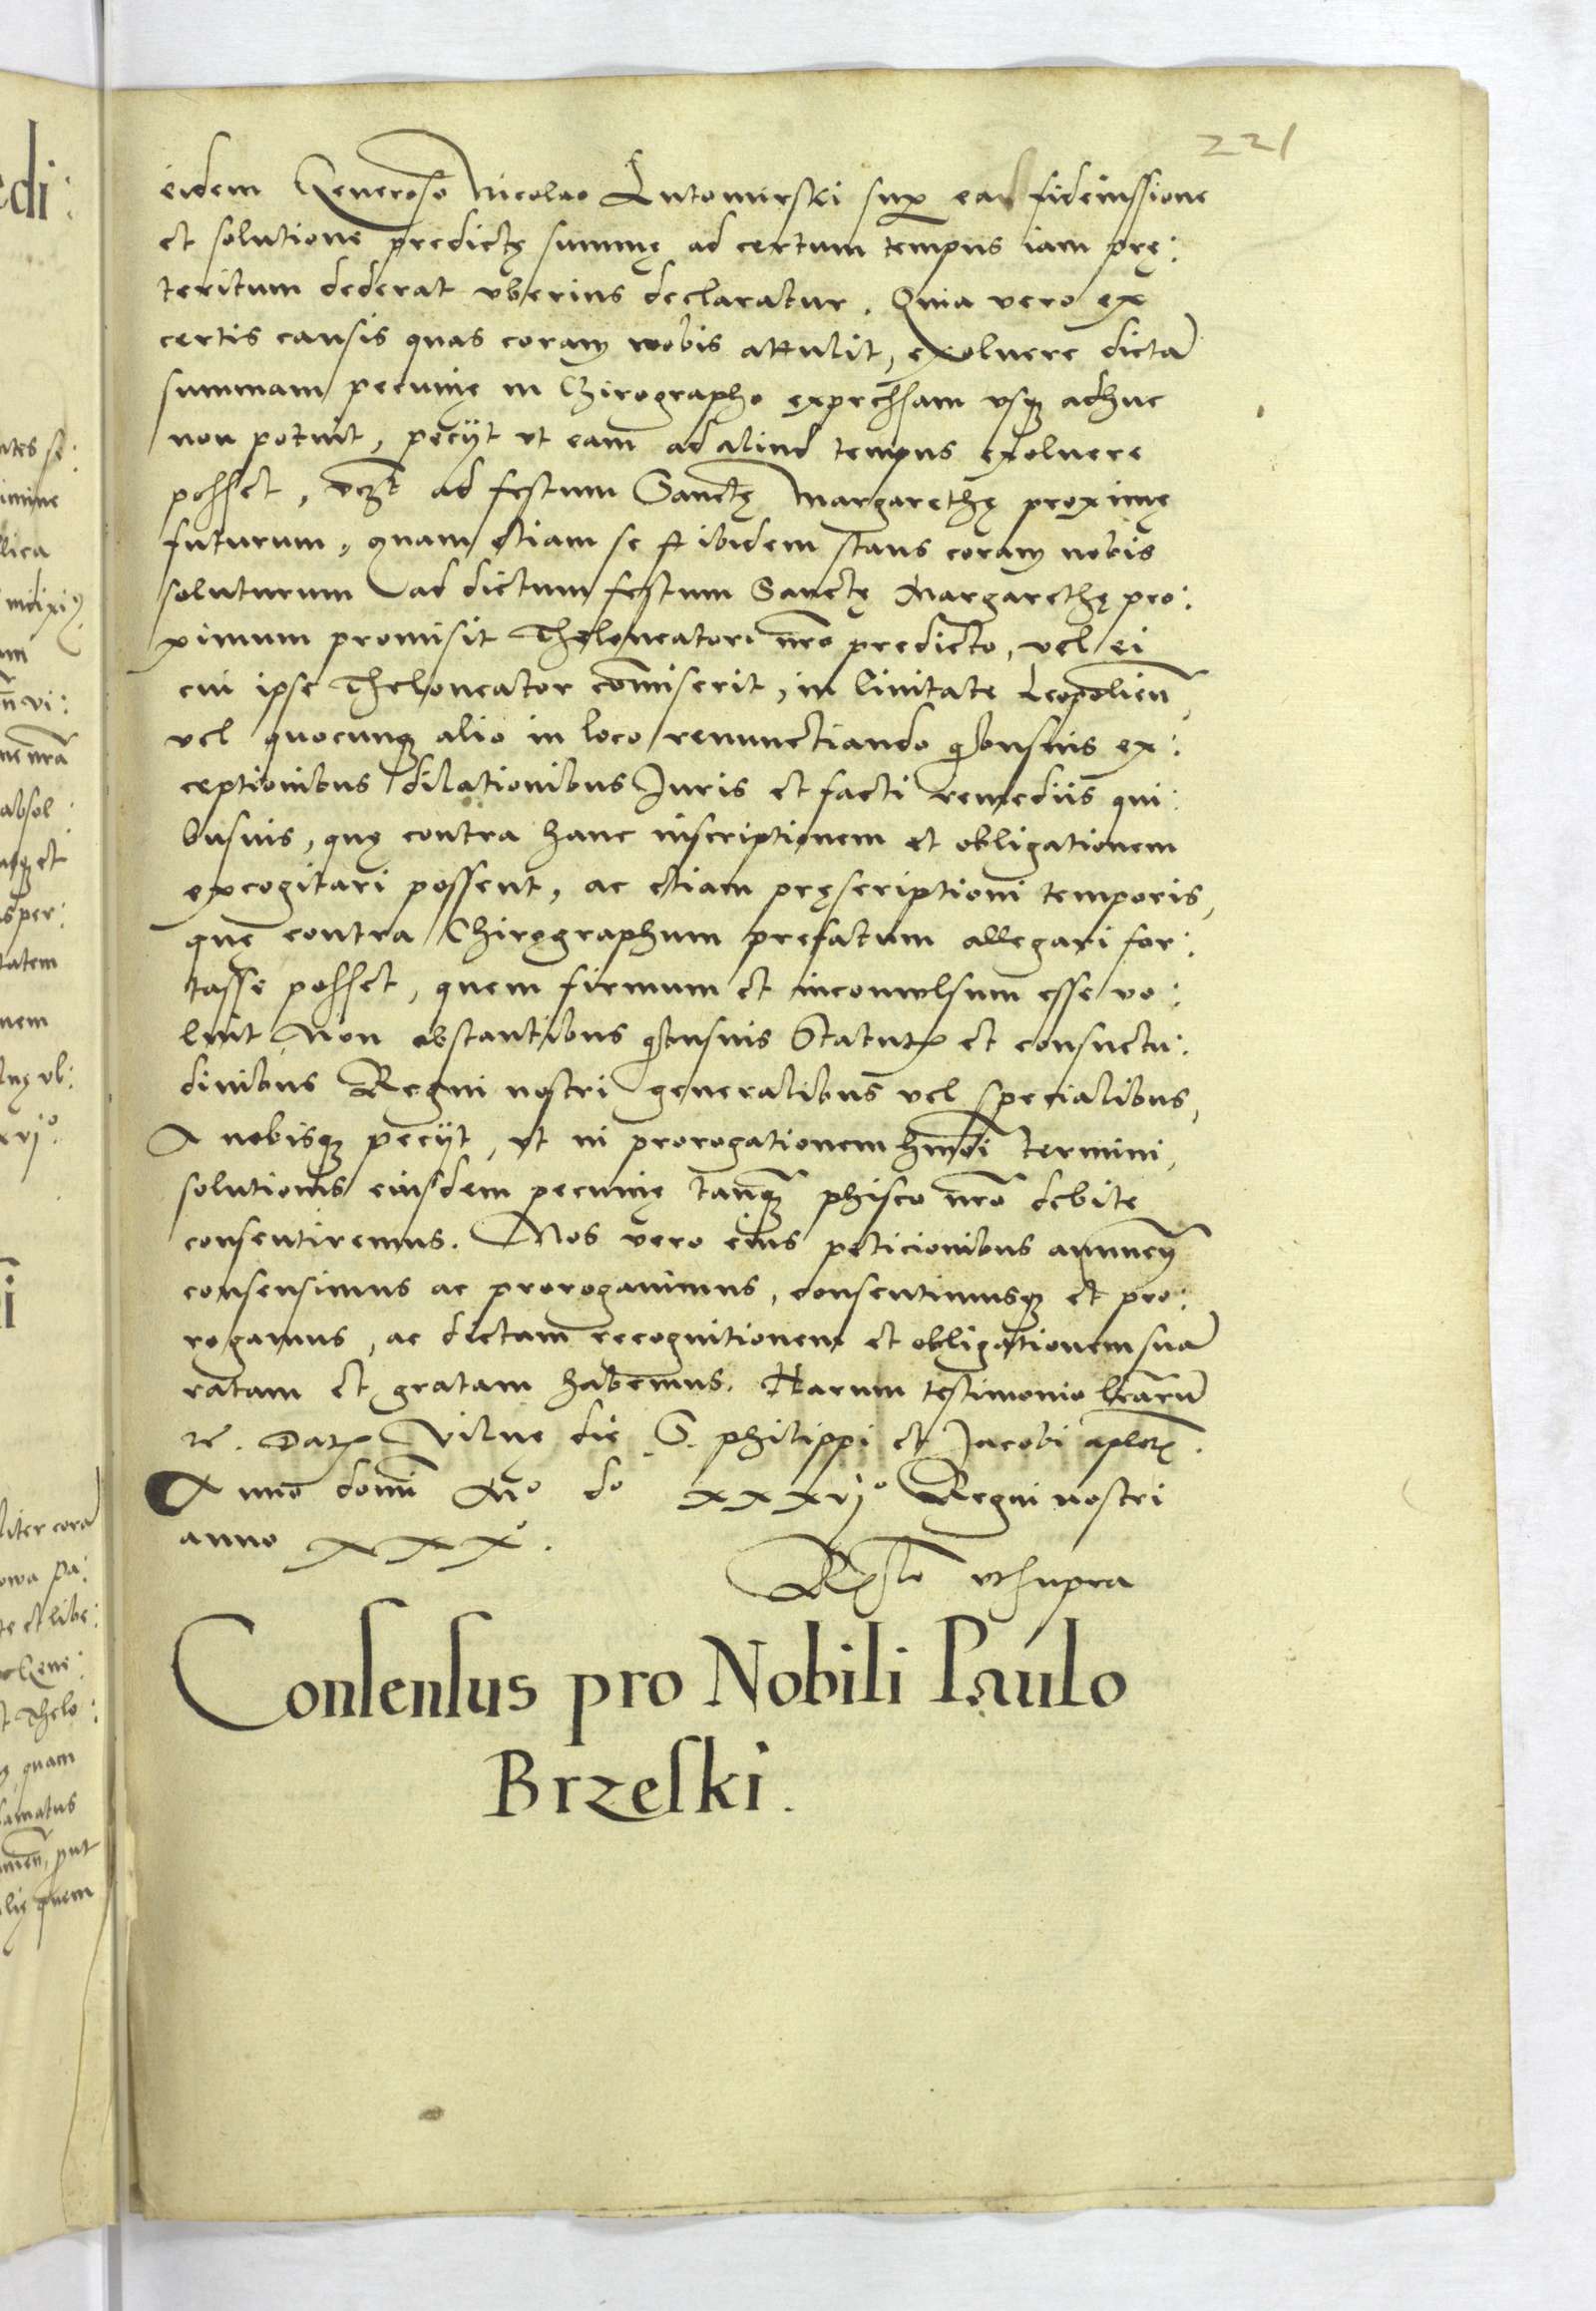 221
eidem Generoso Nicolao Lutomirski sup ea fideiussione
et solutione predictę summę ad certum tempus iam prę:
teritum dederat vberius declaratur. Quia vero ex
certis causis quas coram nobis attulit, exoluere dictā
summam pecunię in Chirographo expressam vsq adhuc
non potuit, pecijt vt eam ad aliud tempus exoluere
posset, vczt ad festum Sanctę Margarethę proximę
futurum, quam etiam se ibidem stans coram nobis
soluturum ad dictum festum Sanctę Margarethę pro:
ximum promisit Theloneatori nro predicto, vel ei
cui ipse Theloneator comiserit, in Ciuitate Leopolień,
vel quocunq alio in loco renunctiando qbusuis ex:
ceptionibus dilationibus Juris et facti remedijs qui:
busuis, quę contra hanc inscriptionem et obligationem
excogitari possent, ac etiam pręscriptioni temporis,
quę contra Chirographum prefatum allegari for:
tasse posset, quem firmum et inconwlsum esse vo:
luit Non obstantibus qbusuis Statut et consuetu:
dinibus Regni nostri generalibus vel specialibus,
A nobisq pecijt, vt in prorogationem hmoi termini,
solutionis eiusdem pecunię tanq phisco nro debite
consentiremus. Nos vero eius peticionibus annueń
consensimus ac prorogauimus, consentimusq et pro:
rogamus, ac dictam recognitionem et obligationem suā
ratam et gratam habemus. Harum testimonio lrarū
rc. Dat Vilnę die S. philippi et Jacobi aplor.
Anno domi Mo do xxxvjo Regni nostri
anno xxxo.
Rlo vt supra
Consensus pro Nobili Paulo
Brzeski.